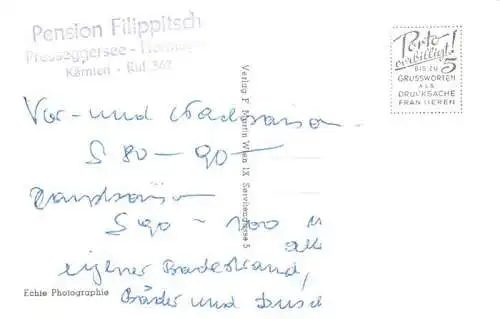 Pension Filippitsch
Presseggersee - Hermagor
Kärnten - Ruf 367
Porto
verbilligt!
BIS ZU 5
GRUSSWORTEN
ALS
DRUCKSACHE
FRANKIEREN
Vor- und Nachsaison
S 80 - 90 -
S 90 - 100
alle
eigener Badestrand,
Bäder und Dusch
Verlag F. Martin Wien IX Servitengasse 5
Echte Photographie